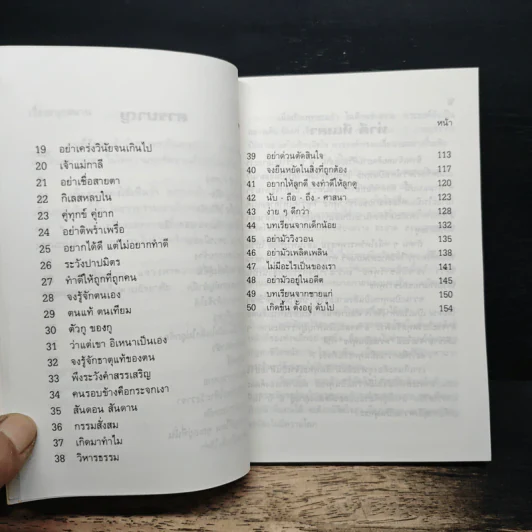 19 อย่าเคร่งวินัยจนเกินไป
20 เจ้าแม่กาลี
21 อย่าเชื่อสายตา
22 กิเลสหลบใน
23 คู่ทุกข์ คู่ยาก
24 อย่าดีพร่ำเพรื่อ
25 อยากได้ดี แต่ไม่อยากทำดี
26 ระวังปาปมิตร
27 ทำดีให้ถูกที่ถูกคน
28 จงรู้จักตนเอง
29 ตนแท้ ตนเทียม
30 ตัวกู ของกู
31 ว่าแต่เขา อิเหนาเป็นเอง
32 จงรู้จักธาตุแท้ของตน
33 พึงระวังคำสรรเสริญ
34 คนรอบข้างคือกระจกเงา
35 สันดอน สันดาน
36 กรรมสั่งสม
37 เกิดมาทำไม
38 วิหารธรรม
หน้า
39 อย่าด่วนตัดสินใจ 113
40 จงยืนหยัดในสิ่งที่ถูกต้อง 117
41 อยากให้ลูกดี จงทำดีให้ลูกดู 120
42 นับ - ถือ - ถึง - ศาสนา 123
43 ง่าย ๆ ดีกว่า 128
44 บทเรียนจากเด็กน้อย 132
45 อย่ามัววิงวอน 135
46 อย่ามัวเพลิดเพลิน 138
47 ไม่มีอะไรเป็นของเรา 141
48 อย่ามัวอยู่ในอดีต 145
49 บทเรียนจากชายแก่ 150
50 เกิดขึ้น ตั้งอยู่ ดับไป 154